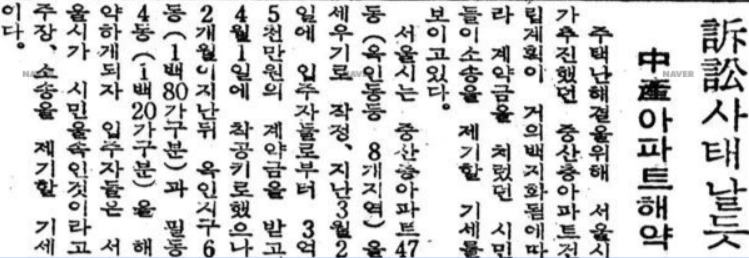 訴訟사태날듯
中産아파트해약
주택난해결을위해 서울시
가추진했던 중산층아파트건
립계획이 거의백지화됨에따
라 계약금을 치렀던 시민
들이소송을 제기할 기세를
보이고있다。
서울시는 중산층아파트47
동(옥인동등 8개지역)을
세우기로 작정、지난3월2
일에 입주자들로부터 3억
5천만원의 계약금을 받고
4월1일에 착공키로했으나
2개월이지난뒤 옥인지구6
동(1백80가구분)과 필동
4동(1백20가구분)을 해
약하게되자 입주자들은 서
울시가 시민을속인것이라고
주장、소송을 제기할 기세
이다。
NAVER
NAVER
NAVER